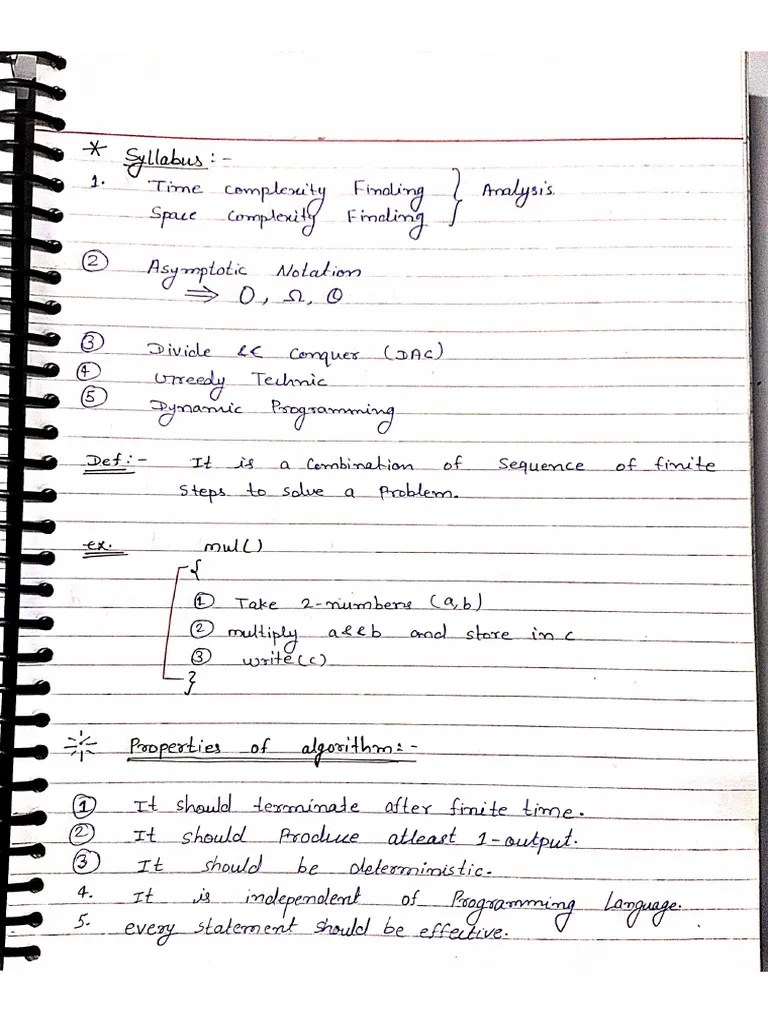 * Syllabus :-
1. Time complexity Finding } Analysis.
Space Complexity Finding
② Asymptotic Notation
⇒ O, Ω, Θ
③ Divide && Conquer (DAC)
④ Greedy Technic
⑤ Dynamic Programming
Def:- It is a Combination of Sequence of finite
Steps to solve a Problem.
ex. mul()
{
① Take 2-numbers (a,b)
② multiply a&&b and store in c
③ write(c)
}
Properties of algorithm:-
① It should terminate after finite time.
② It should Produce atleast 1-output.
③ It should be deterministic.
4. It is independent of Programming Language.
5. every statement should be effective.